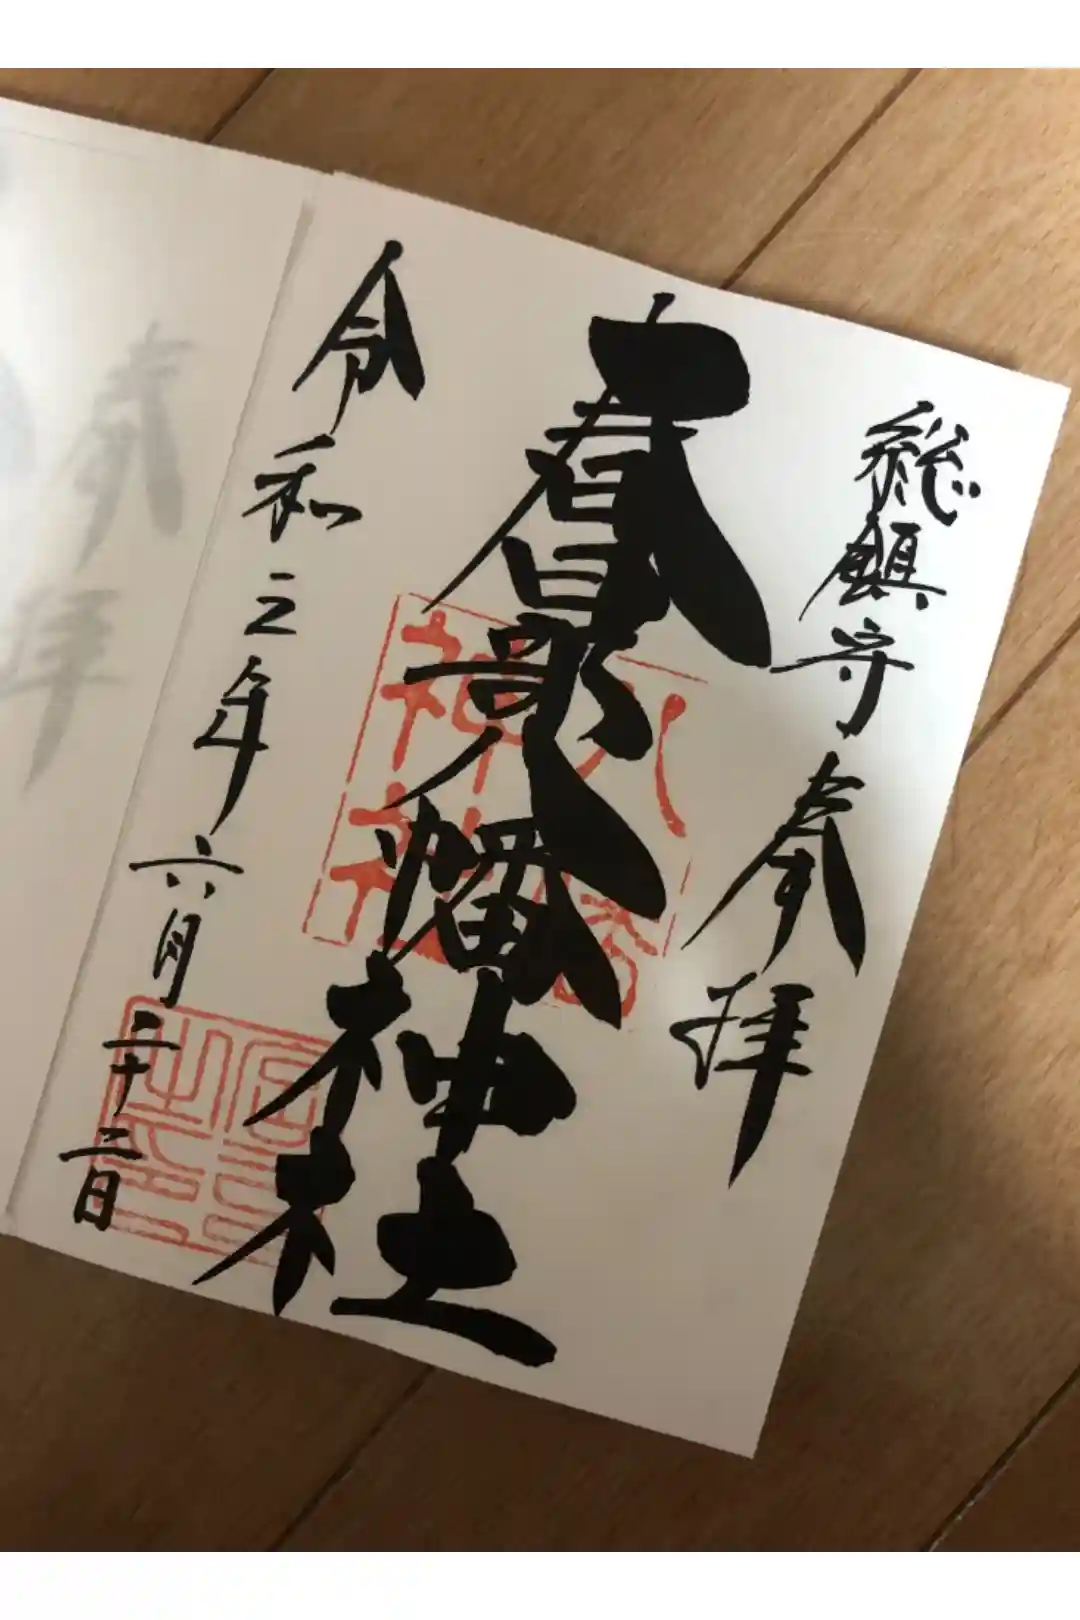 総鎮守 奉拝
春日部八幡神社
八幡
神社
令和三年六月二十二日